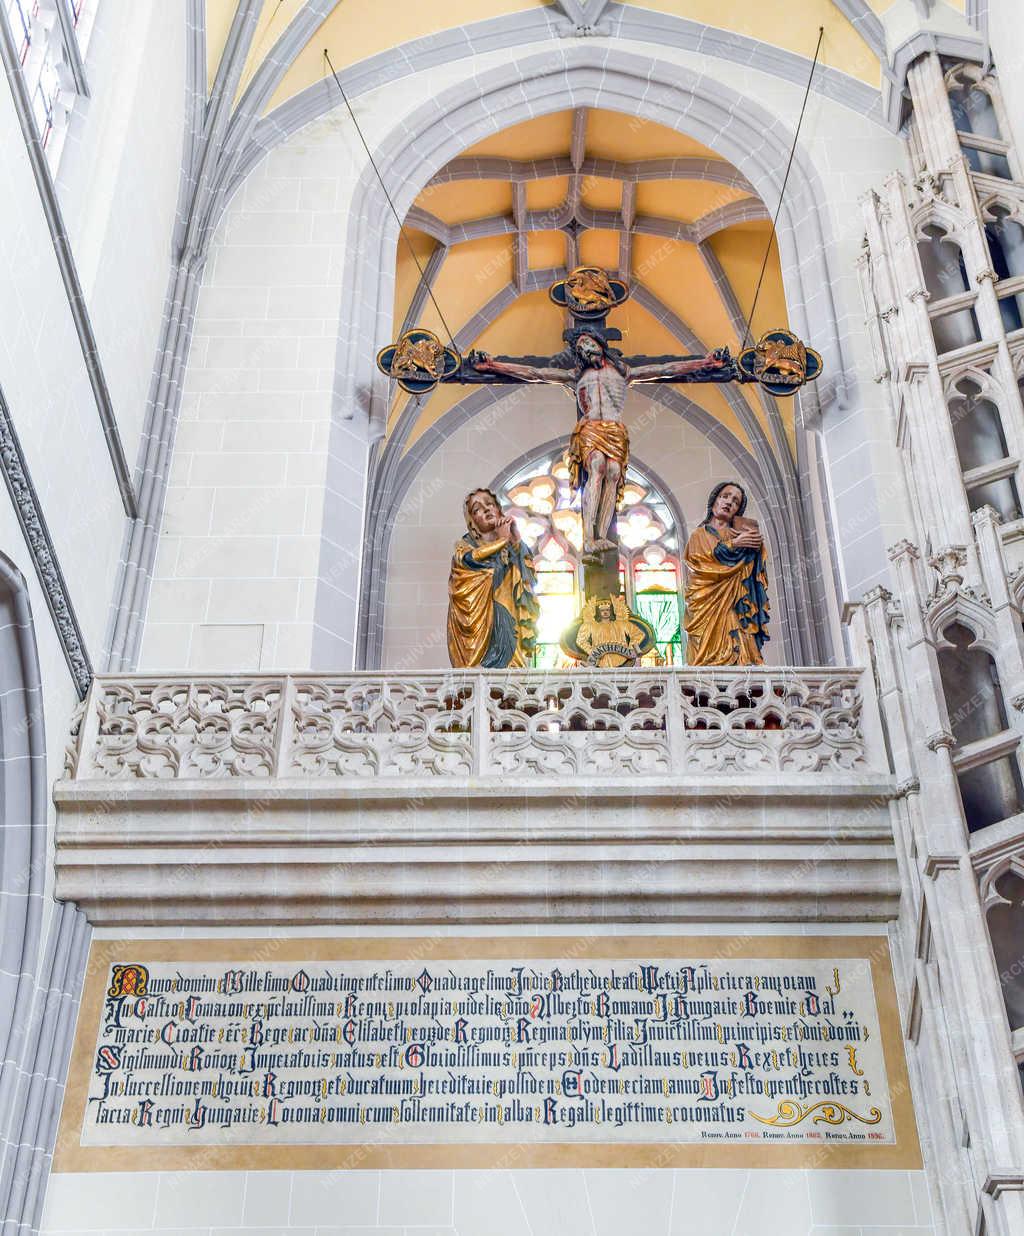 MATHEUS
Anno domini Millesimo Quadringentesimo Quadragesimo In die Kathedre beati Petri Apli circa auroram
In Castro Comaron ex pclarissima Regni prosapia videlicet dno Alberto Romano J Hungarie Boemie Dal
macie Croatie etc Rege ac dna Elisabeth eorde Regnor Regina olym filia Invictissimi principis et dni domi
Sigismundi Romor Imperatoris natus est Gloriosissimus pnceps dns Ladislaus verus Rex et heres
In successionem horum Regnor et ducatuum hereditarie possiden Eodem eciam anno In festo penthecostes
sacra Regni Hungarie Corona omni cum sollennitate in alba Regali legittime coronatus
Renov. Anno 1768. Renov. Anno 1862. Renov. Anno 1896.
NEMZETI ARCHÍVUM